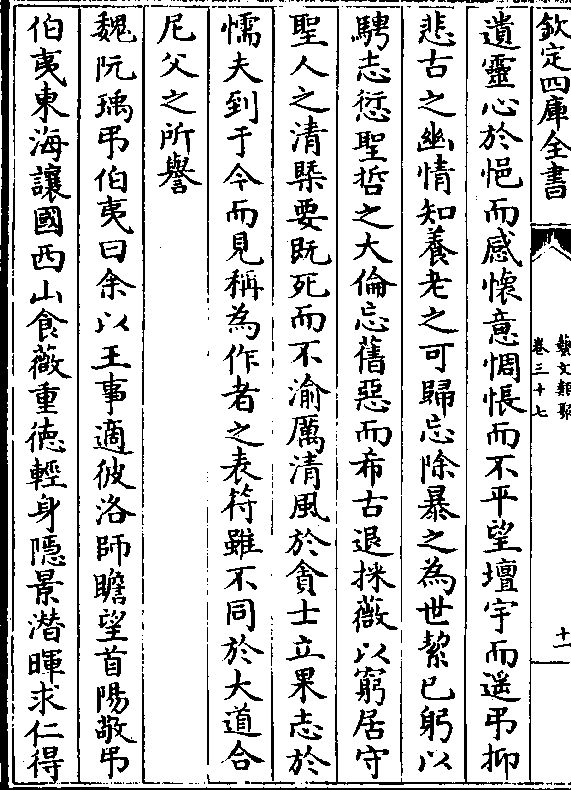 欽定四庫全書
藝文類聚
卷三十七
十一
遺靈心於悒而感懷意惆悵而不平望壇宇而遥弔抑
悲古之幽情知養老之可歸忘除暴之為世絜已躬以
騁志愆聖哲之大倫忘舊惡而希古退採薇以窮居守
聖人之清槩要既死而不渝厲清風於貪士立果志於
懦夫到于今而見稱為作者之表符雖不同於大道合
尼父之所譽
魏阮瑀弔伯夷曰余以王事適彼洛師瞻望首陽敬弔
伯夷東海讓國西山食薇重徳輕身隱景潛暉求仁得